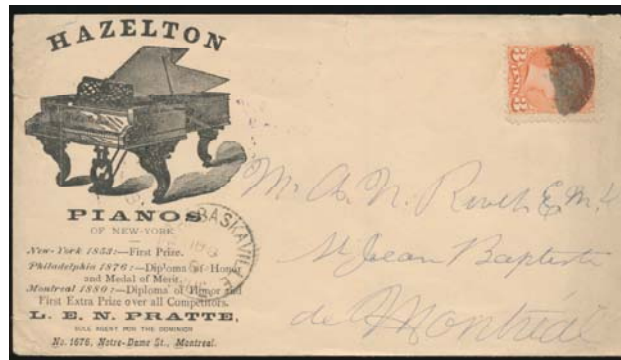 HAZELTON
PIANOS
OF NEW-YORK
New-York 1853:—First Prize.
Philadelphia 1876:—Diploma of Honor
and Medal of Merit.
Montreal 1880:—Diploma of Honor and
First Extra Prize over all Competitors.
L. E. N. PRATTE,
SOLE AGENT FOR THE DOMINION
No. 1676, Notre-Dame St., Montreal.
BASKAVILL
3 3
Mr. N.
St Jean Baptiste
de Montreal